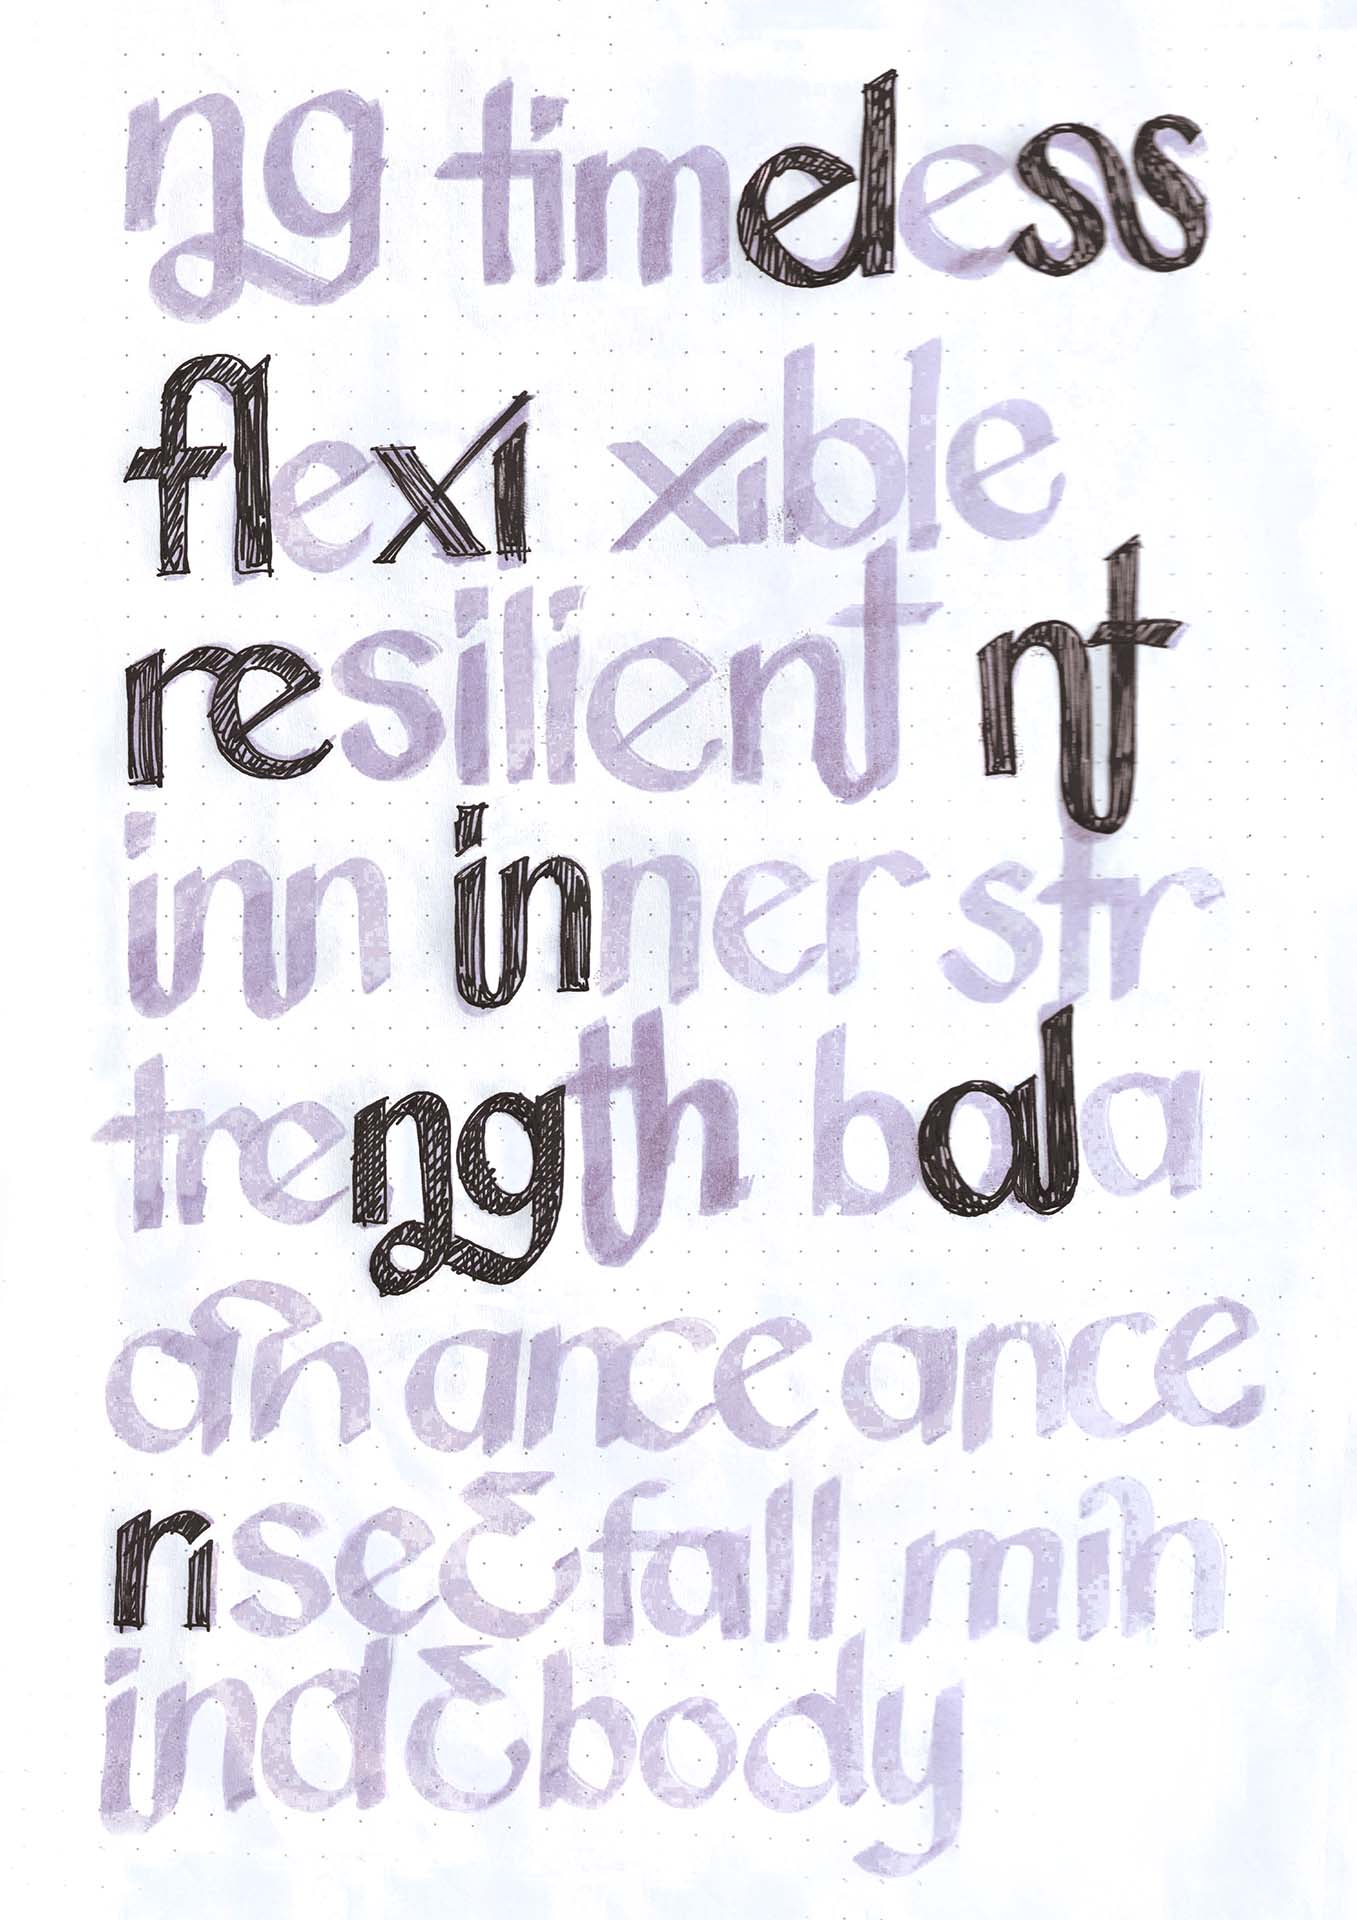 ng timeless
flexi xible
resilient nt
inn inner str
trength bala
an ance ance
rise & fall min
ind & body